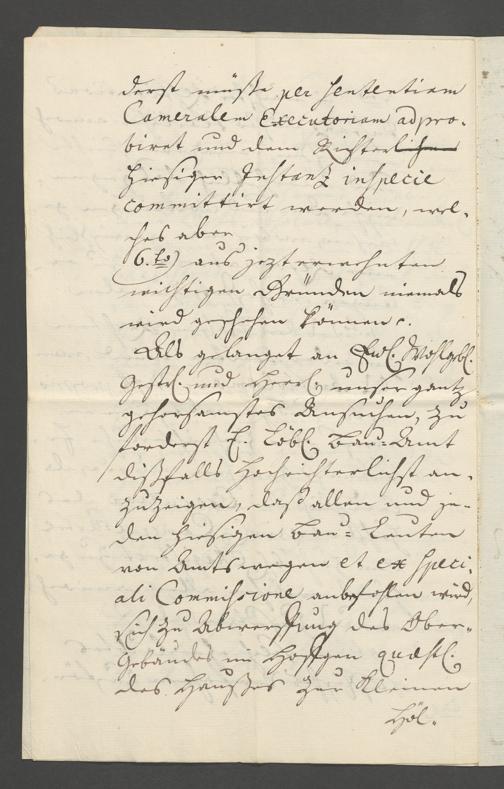 derst müste per Sententiam
Cameralem Executoriam adpro-
biret und dem Richterlichen
hiesiger Instanz in specie
committirt werden, wel-
ches aber
6.to) aus jezterwehnten
wichtigen Gründen niemals
wird geschehen können.
Als gelanget an Ewl. Wohlgebl.
Gestrl. und Herrl. unser gantz
gehorsamstes Ansuchen, zu
forderst E. Löbl. Bau-Amt
dißfalls Hochrichterlichst an-
zuzeigen, daß allen und je-
den hiesigen Bau-Leuten
von Amtswegen et ex speci-
ali Commissione anbefohlen würd,
sich zu Abwerffung des Ober-
Gebäudes im Höffgen quæstl.
des Haußes zur kleinen
Höl-